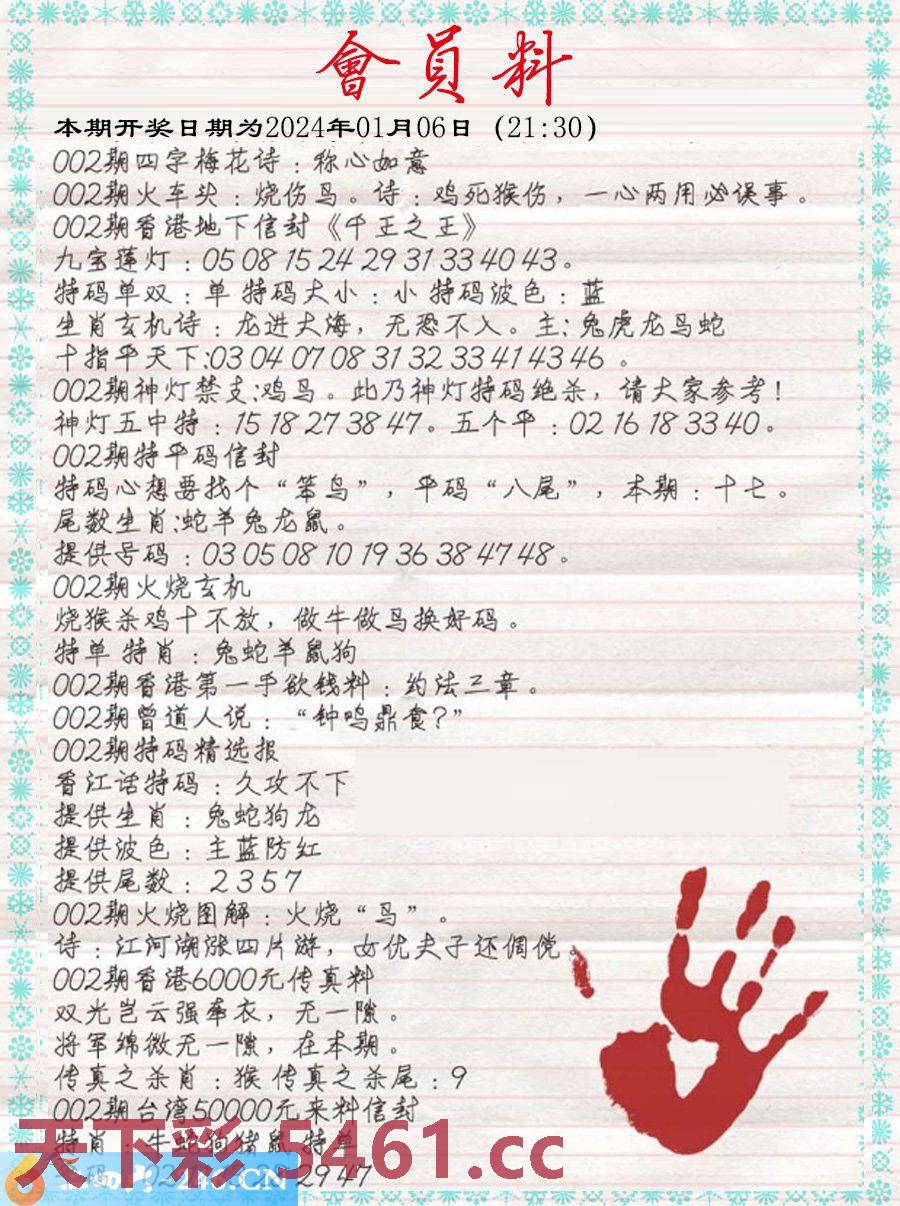 會員料
本期开奖日期为2024年01月06日（21:30）
002期四字梅花诗：称心如意
002期火车头：烧伤鸟。诗：鸡死猴伤，一心两用必误事。
002期香港地下信封《千王之王》
九宝莲灯：05 08 15 24 29 31 33 40 43。
特码单双：单 特码大小：小 特码波色：蓝
生肖玄机诗：龙进大海，无恐不入。主:兔虎龙马蛇
十指平天下:03 04 07 08 31 32 33 41 43 46 。
002期神灯禁支:鸡鸟。此乃神灯特码绝杀，请大家参考！
神灯五中特：15 18 27 38 47。五个平：02 16 18 33 40。
002期特平码信封
特码心想要找个“笨鸟”，平码“八尾”，本期：十七。
尾数生肖:蛇羊兔龙鼠。
提供号码：03 05 08 10 19 36 38 47 48。
002期火烧玄机
烧猴杀鸡十不放，做牛做马换好码。
特单 特肖：兔蛇羊鼠狗
002期香港第一手欲钱料：约法三章。
002期曾道人说：“钟鸣鼎食？”
002期特码精选报
香江话特码：久攻不下
提供生肖：兔蛇狗龙
提供波色：主蓝防红
提供尾数：２３５７
002期火烧图解：火烧“鸟”。
诗：江河湖涨四片游，女优夫子还倜傥。
002期香港6000元传真料
双光岂云强牵衣，无一隙。
将军绵微无一隙，在本期。
传真之杀肖：猴 传真之杀尾：9
002期台湾50000元来料信封
特肖：牛蛇狗猪鼠 特单
天下彩 5461.cc
29 47